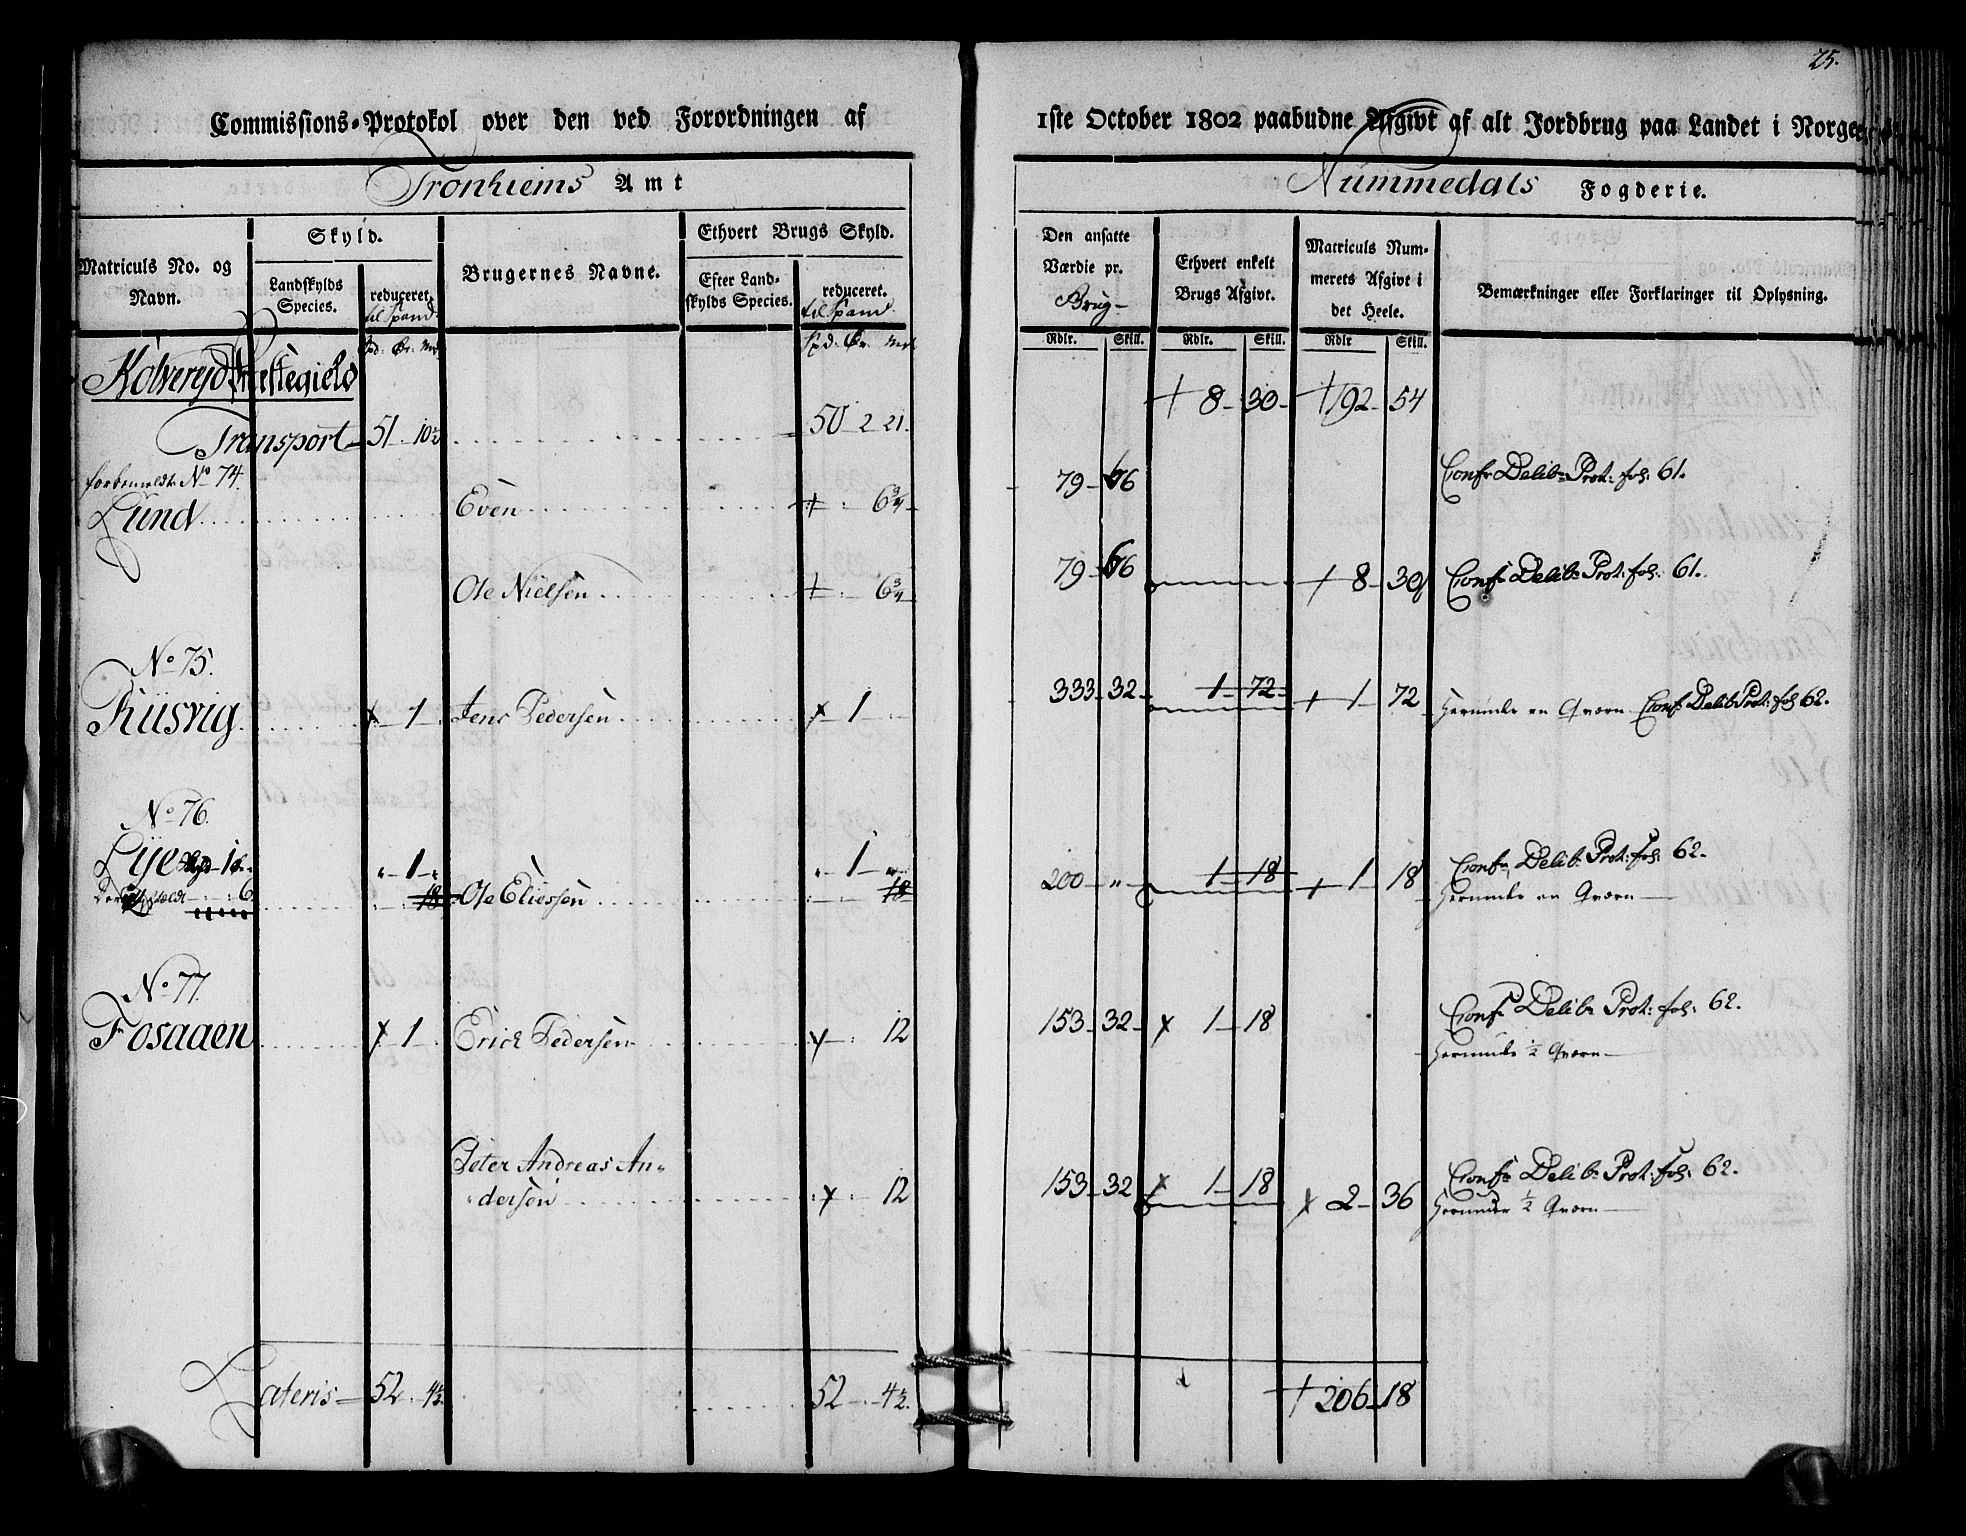 25.
Commissions-Protokol over den ved Forordningen af 1ste October 1802 paabudne Afgivt af alt Jordbrug paa Landet i Norge
Tronhiems Amt
Nummedals Fogderie.
Matriculs No. og Navn.
Skyld.
Landskylds Species.
reduceret til Spand
Brugernes Navne.
Ethvert Brugs Skyld.
Efter Landskylds Species.
reduceret til Spand
Den ansatte Værdie pr. Brug
Ethvert enkelt Brugs Afgivt.
Matriculs Nummerets Afgivt i det Heele.
Bemærkninger eller Forklaringer til Oplysning.
Rdlr. Skill. Rdlr. Skill. Rdlr Skill.
Kolveryd Præstegield
+ 8 - 30 - + 192 - 54
Transport - 51 . 10½ 50 - 2 21.
forbemeldte No 74.
Lund Even + . 6¾ 79 - 66 Confr Delib: Prot: fol: 61.
Ole Nielsen + . 6¾ 79 - 66 + 8 - 30 Confr Delib: Prot: fol: 61.
No 75.
Riisvig x 1 Jens Pedersen x 1 333 - 32 - 1 - 72 + 1 - 72 Herunder en Qværn Confr Delib: Prot: fol 62.
No 76.
Lye 1 Ole Eliessen 1 18 200 - " - 1 - 18 + 1 - 18 Confr Delib: Prot: fol: 62.
Herunder en Qværn
No 77.
Fosaaen x 1 Erich Pedersen x . 12 153 - 32 - x 1 - 18 Confr Delib: Prot: fol: 62.
Herunder ½ Qværn
Peter Andreas An-
dersen x . 12 153 - 32 x 1 - 18 x 2 - 36 Confr Delib: Prot: fol: 62.
Herunder ½ Qværn
Lateris - 52 . 4½ 52 - 4½. + 206 - 18